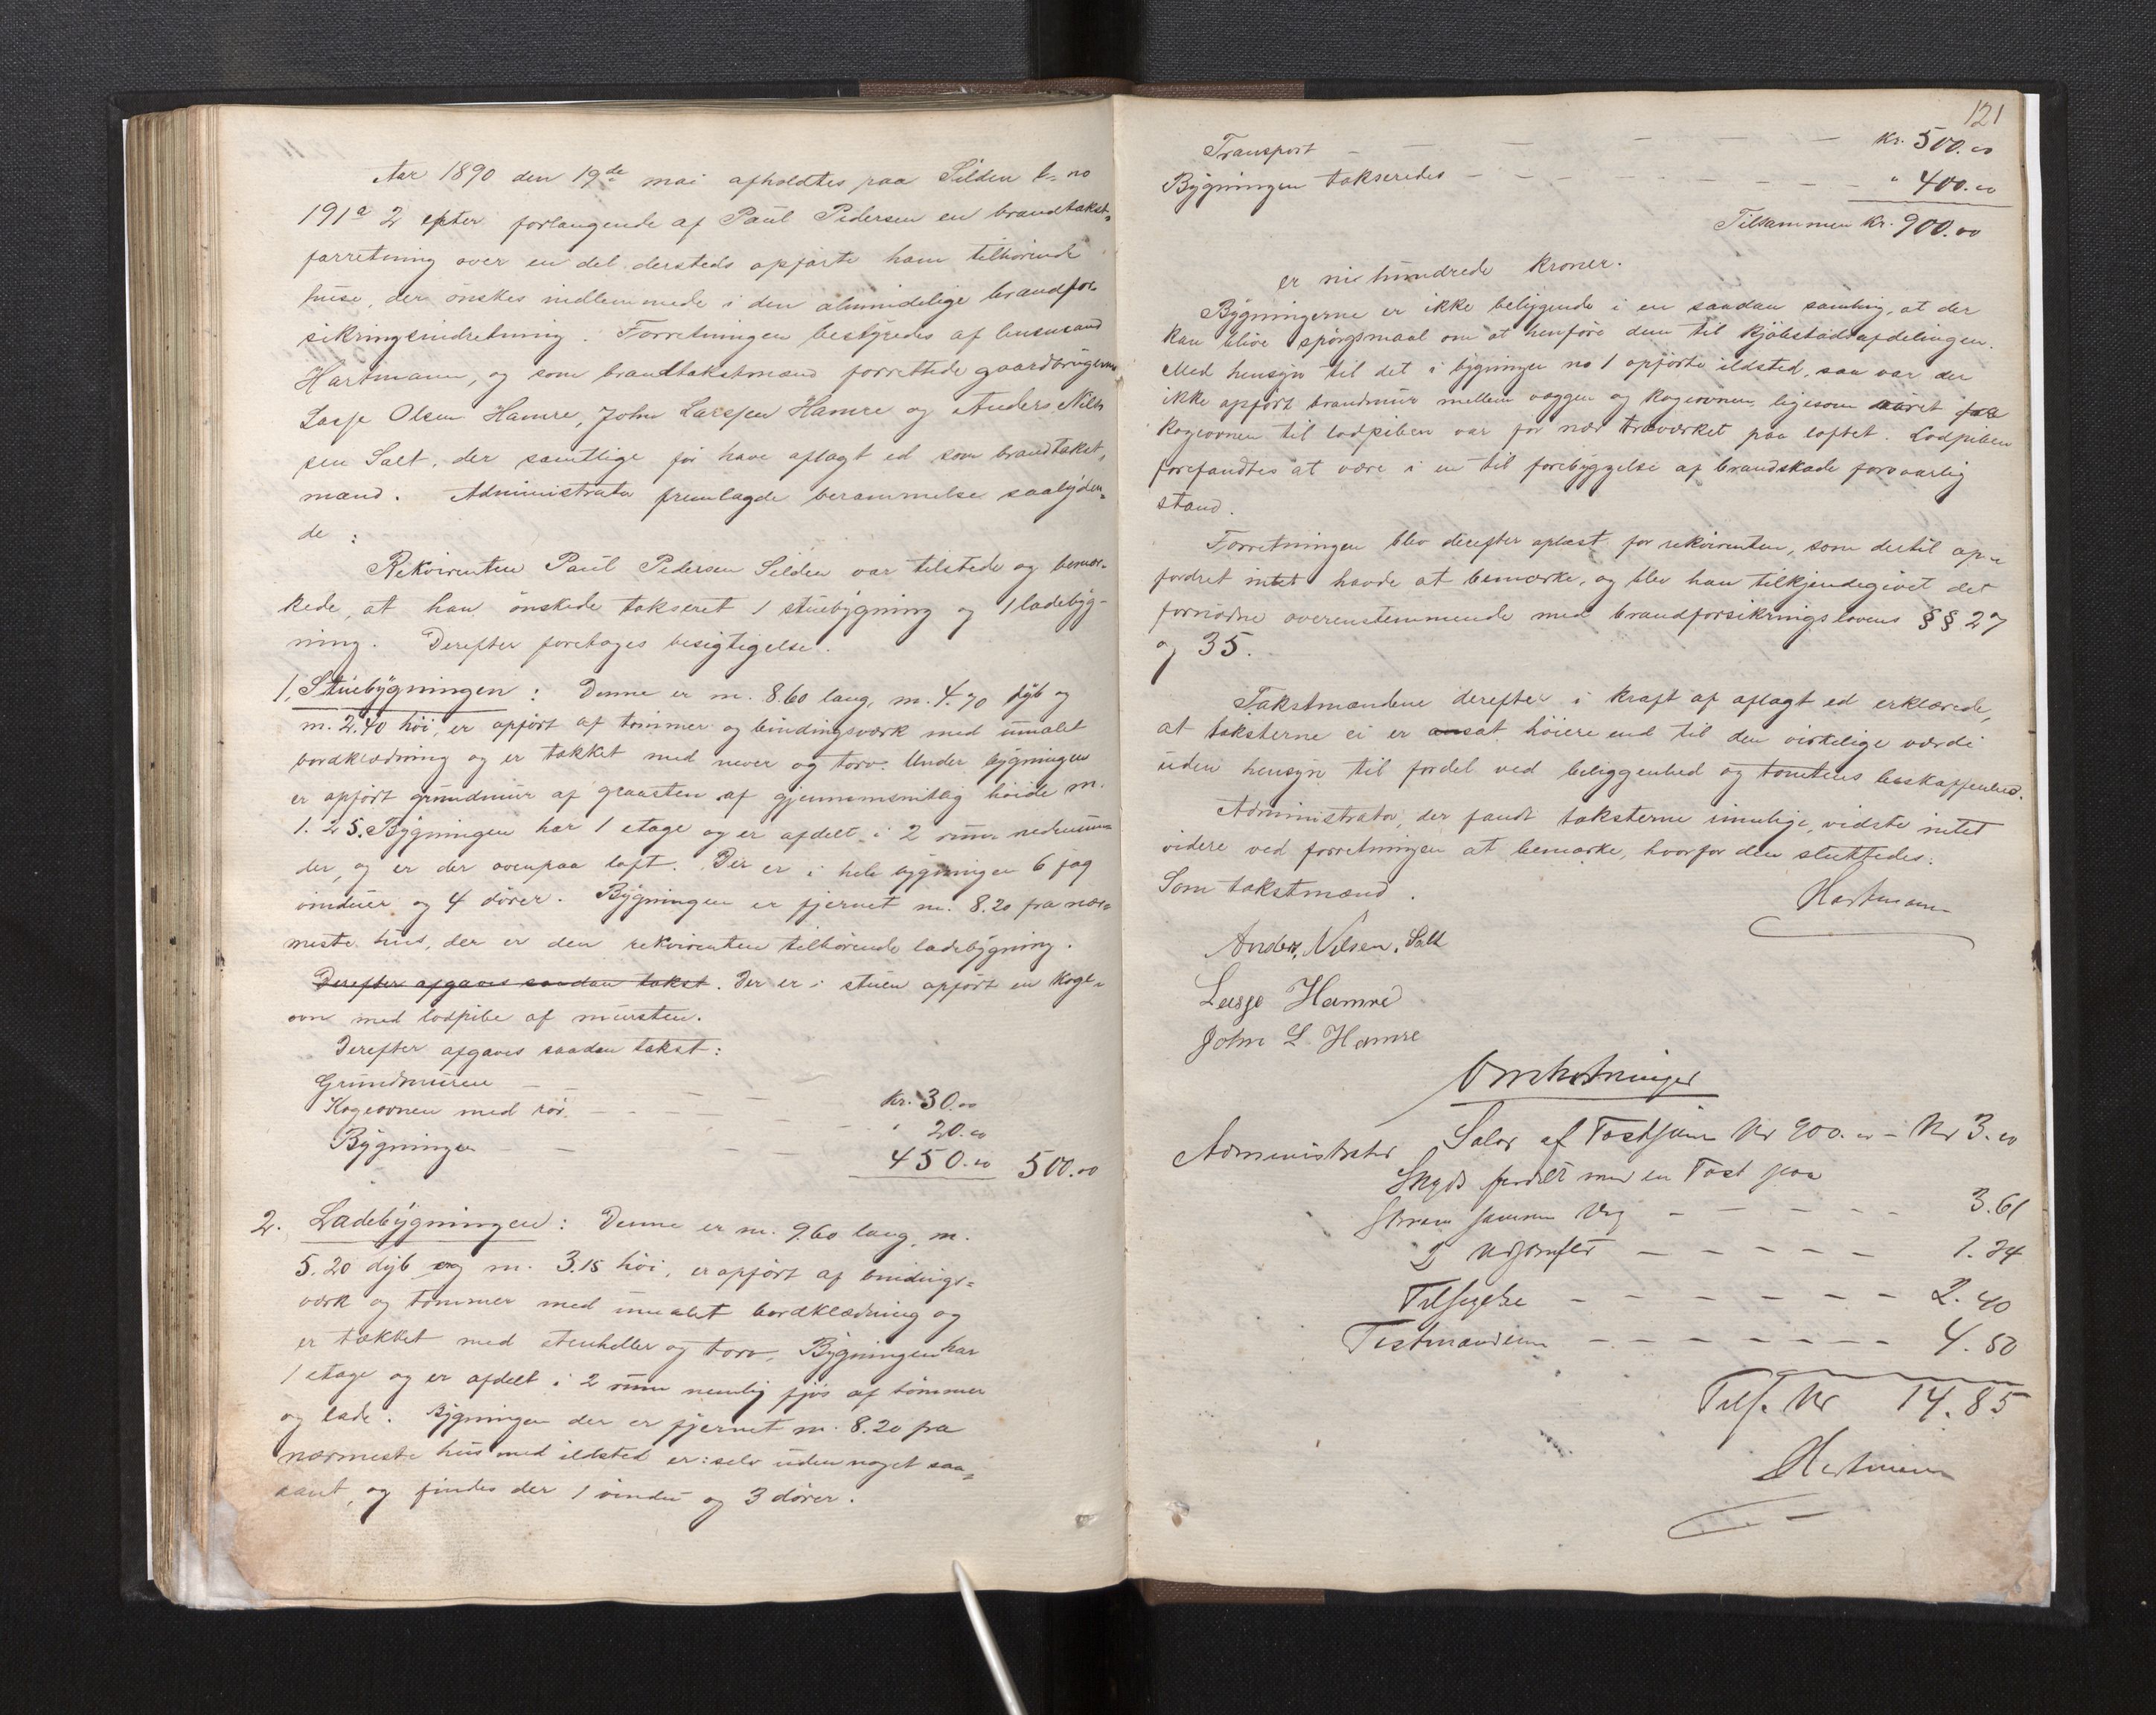 Aar 1890 den 19de mai afholdtes paa Silden l=no
191a 2 efter forlangende af Paul Pedersen en brandtakst=
forretning over en del dersteds opførte ham tilhørende
huse, der ønskes indlemmede i den almindelige brandfor=
sikringsindretning. Forretningen bestyredes af lensmand
Hartmann, og som brandtakstmænd forrettede gaardbrugerne
Lasse Olsen Hamre, John Larssen Hamre og Anders Niel=
sen Salt, der samtlige før have aflagt ed som brandtakst=
mænd. Administrator fremlagde berammelse saalyden=
de:
Rekvirenten Paul Pedersen Silden var tilstede og bemær=
kede, at han ønskede takseret 1 stuebygning og 1 ladebyg=
ning. Derefter foretoges besigtigelse.
1, Stuebygningen: Denne er m. 8.60 lang, m. 4.70 dyb og
m. 2.40 høi, er opført af tømmer og bindingsværk med umalet
bordklædning og er tækket med never og torv. Under bygningen
er opført grundmur af graasten af gjennemsnitlig høide m.
1.25. Bygningen har 1 etage og er afdelt i 2 rum nedenun=
der, og er der ovenpaa loft. Der er i hele bygningen 6 fag
vinduer og 4 dører. Bygningen er fjernet m. 8.20 fra nær=
meste hus, der er den rekvirenten tilhørende ladebygning.
Derefter afgaves saadan takst. Der er i stuen opført en koge=
ovn med lodpibe af mursten.
Derefter afgaves saadan takst:
Grundmuren — kr. 30.00
Kogeovnen med rør. — " 20.00
Bygningen — 450.00 500.00
2. Ladebygningen: Denne er m. 9.60 lang, m.
5.20 dyb og m. 3.15 høi, er opført af bindings=
værk og tømmer med umalet bordklædning og
er tækket med stenheller og torv. Bygningen har
1 etage og er afdelt i 2 rum nemlig fjøs af tømmer
og lade. Bygningen der er fjernet m. 8.20 fra
nærmeste hus med ildsted er: selv uden noget saa=
dant, og findes der 1 vindu og 3 dører.
121
Transport — kr. 500.00
Bygningen takseredes — " 400.00
Tilsammen kr. 900.00
er ni hundrede kroner.
Bygningerne er ikke beliggende i en saadan samling, at der
kan blive spørgsmaal om at henføre dem til kjøbstadsafdelingen.
Med hensyn til det i bygningen no 1 opførte ildsted, saa var der
ikke opført brandmur mellem væggen og kogeovnen, ligesom røret fra
kogeovnen til lodpiben var for nær træværket paa loftet. Lodpiben
forefandtes at være i en til forebyggelse af brandskade forsvarlig
stand.
Forretningen blev derefter oplæst for rekvirenten, som dertil op=
fordret intet havde at bemærke, og blev han tilkjendegivet det
fornødne overenstemmende med brandforsikringslovens §§ 27
og 35.
Takstmændene derefter i kraft af aflagt ed erklærede,
at taksterne ei er ansat høiere end til den virkelige værdi
uden hensyn til fordel ved beliggenhed og tomtens beskaffenhed.
Administrator, der fandt taksterne rimelige, vidste intet
videre ved forretningen at bemærke, hvorfor den sluttedes.
Som takstmænd.
Hartmann
Anders, Nilsen, Salt
Lasse Hamre
John L. Hamre
Omkostninger
Administrator Salær af Taxtsum Kr 900.00 — Kr 3.00
Skyds fordelt med en Taxt paa
samme Veg — 3.61
— 1.34
Tilsigelse — 2.40
Taxtmændene — 4.50
Tils. Kr 14.85
Hartmann